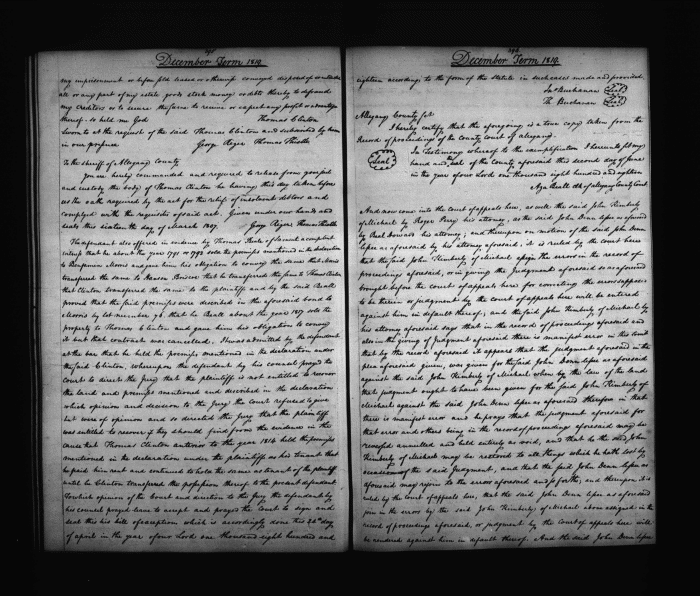 195
December Term 1819.
my imprisonment or before sold leased or otherwise conveyed disposed of or intrusted
all or any part of my estate goods stock money or debts thereby to defraud
my creditors or to secure the same to receive or expect any profit or advantage
thereof so help me God Thomas Clinton
Sworn to at the request of the said Thomas Clinton and subscribed by him
in our presence George Thomas
To the sheriff of Allegany County
You are hereby commanded and required to release from your jail
and custody the body of Thomas Clinton he having this day taken before
us the oath required by the act for the relief of insolvent debtors and
complyed with the requisites of said act. Given under our hands and
seals this sixteenth day of March 1807. Thomas
The defendant also offered in evidence by Thomas a competent
witness that he about the year 1791 or 1792 sold the premises mentioned in the declaration
to Benjamin Morris and gave him his obligation to convey the same that Morris
transferred the same to that he transferred the same to Thomas Clinton
that Clinton transferred the same to the plaintiff and by the said Beall
proved that the said premises were described in the aforesaid bond to
Morris by lot number 96. that he Beall about the year 1807 sold the
property to Thomas Clinton and gave him his obligation to convey
it but that contract was cancelled. It was admitted by the defendant
at the bar that he held the premises mentioned in the declaration under
the said Clinton, whereupon the defendant by his counsel prayed the
Court to direct the Jury that the plaintiff is not entitled to recover
the land and premises mentioned and described in the declaration
which opinion and decision to the Jury the Court refused to give
but were of opinion and so directed the Jury that the plaintiff
was entitled to recover if they should find from the evidence in this
cause that Thomas Clinton anterior to the year 1814 held the premises
mentioned in the declaration under the plaintiff as his tenant that
he paid him rent and continued to hold the same as tenant of the plaintiff
until he Clinton transferred the possession thereof to the present defendant
To which opinion of the Court and direction to the Jury the defendant by
his counsel prayed leave to except and prayed the Court to sign and
seal this his bill of exception which is accordingly done this 24th day
of april in the year of our Lord one thousand eight hundred and
196
December Term 1819.
eighteen according to the form of the statute in such cases made and provided.
Jno Buchanan (Seal)
Th Buchanan (Seal)
Allegany County sct.
I hereby certify that the aforegoing is a true copy taken from the
Record of proceedings of the county court of allegany.
(Seal) In Testimony whereof to the exemplification I hereunto set my
hand and the seal of the County aforesaid this second day of June
in the year of our Lord one thousand eight hundred and eighteen
Aza Beall clk of allegany County Court.
And now come into the court of appeals here, as well the said John Kimberly
of Michael by Roger Perry his attorney, as the said John Denn lessee as aforesaid
by his attorney; and thereupon on motion of the said John Denn
lessee as aforesaid by his attorney aforesaid, it is ruled by the court here
that the said John Kimberly of Michael assign the errors in the record of
proceedings aforesaid, or in giving the Judgment aforesaid so as aforesaid
brought before the court of appeals here for correcting the errors supposed
to be therein or judgment by the court of appeals here will be entered
against him in default thereof; and the said John Kimberly of Michael by
his attorney aforesaid says that in the record of proceedings aforesaid and
also in the giving of Judgment aforesaid there is manifest error in this towit
that by the record aforesaid it appears that the judgment aforesaid in the
plea aforesaid given, was given for the said John Denn lessee as aforesaid
against the said John Kimberly of Michael when by the law of the land
that judgment ought to have been given for the said John Kimberly of
Michael against the said John Denn lessee as aforesaid therefore in that
there is manifest error and he prays that the judgment aforesaid for
that error and others being in the record of proceedings aforesaid may be
reversed annulled and held entirely as void, and that he the said John
Kimberly of Michael may be restored to all things which he hath lost by
occasion of the said Judgment, and that the said John Denn lessee as
aforesaid may rejoin to the errors aforesaid and so forth; and thereupon it is
ruled by the court of appeals here, that the said John Denn lessee as aforesaid
join in the errors by the said John Kimberly of Michael above assigned in the
record of proceedings aforesaid, or judgment by the court of appeals here will
be rendered against him in default thereof. And the said John Denn lessee